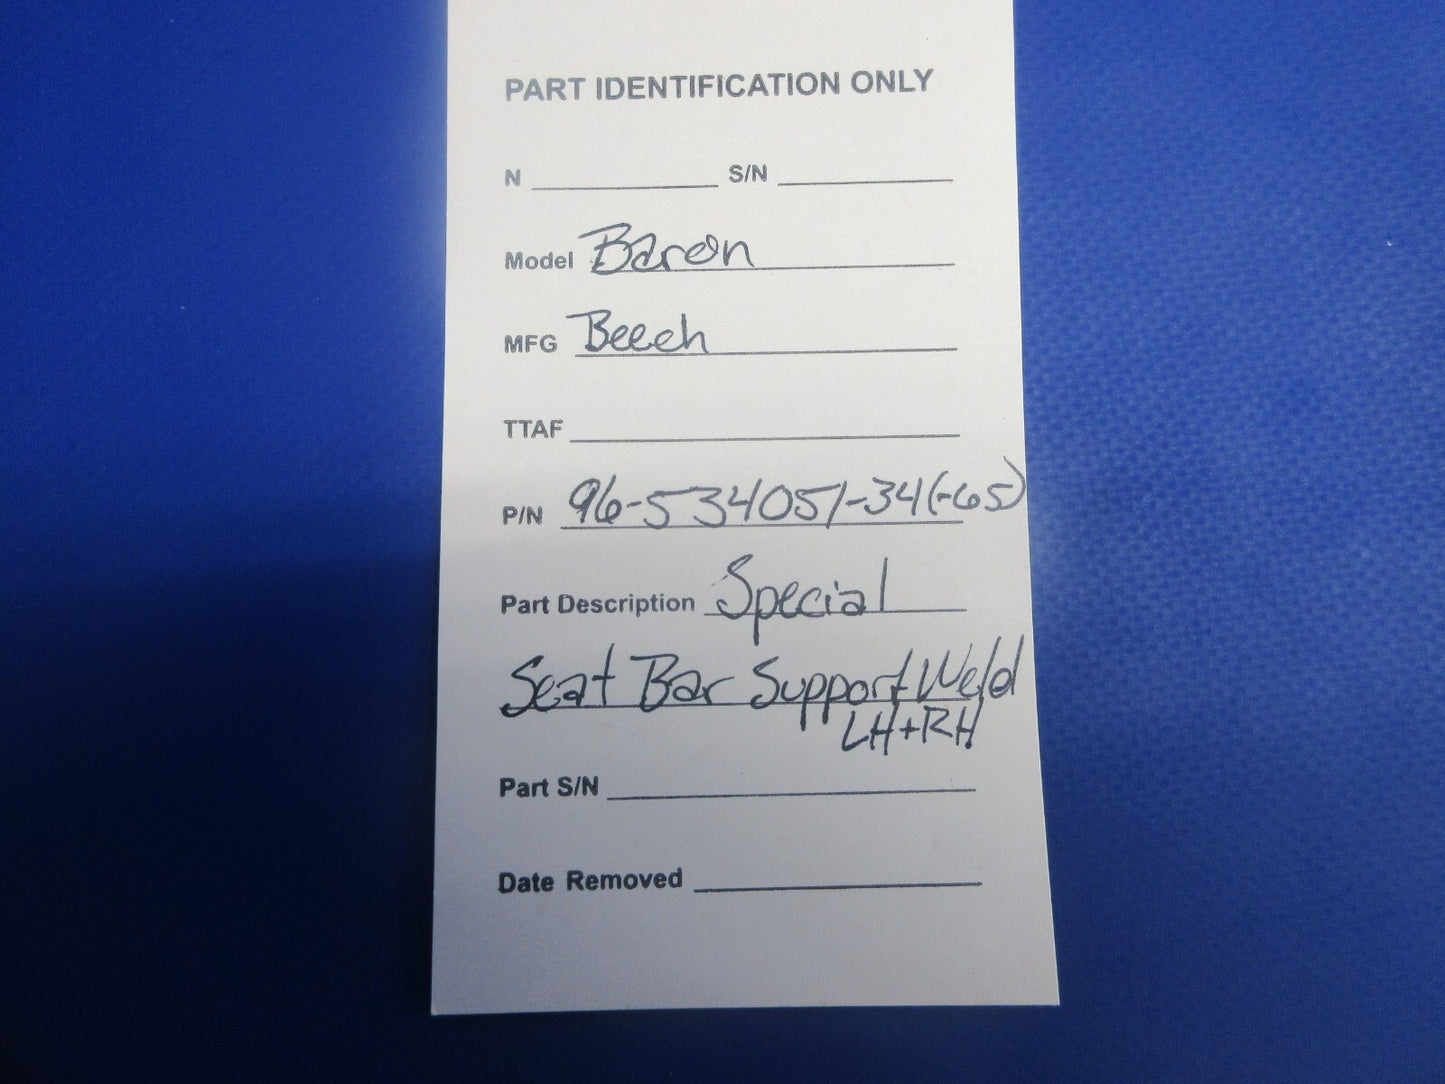 PART IDENTIFICATION ONLY
N S/N
Model Baron
MFG Beech
TTAF
P/N 96-534051-34(-65)
Part Description Special
Seat Bar Support Weld
LH+RH
Part S/N
Date Removed